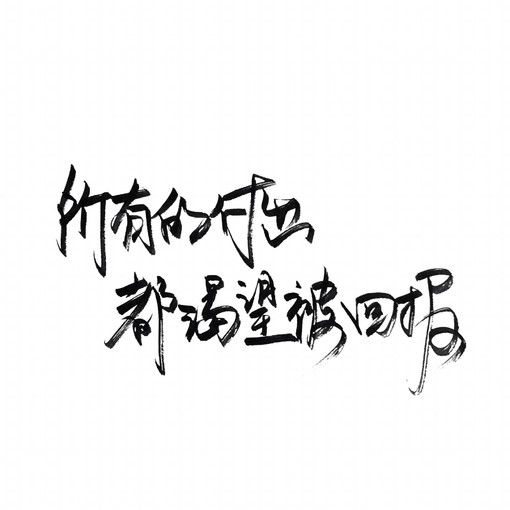 所有的付出
都渴望被回报